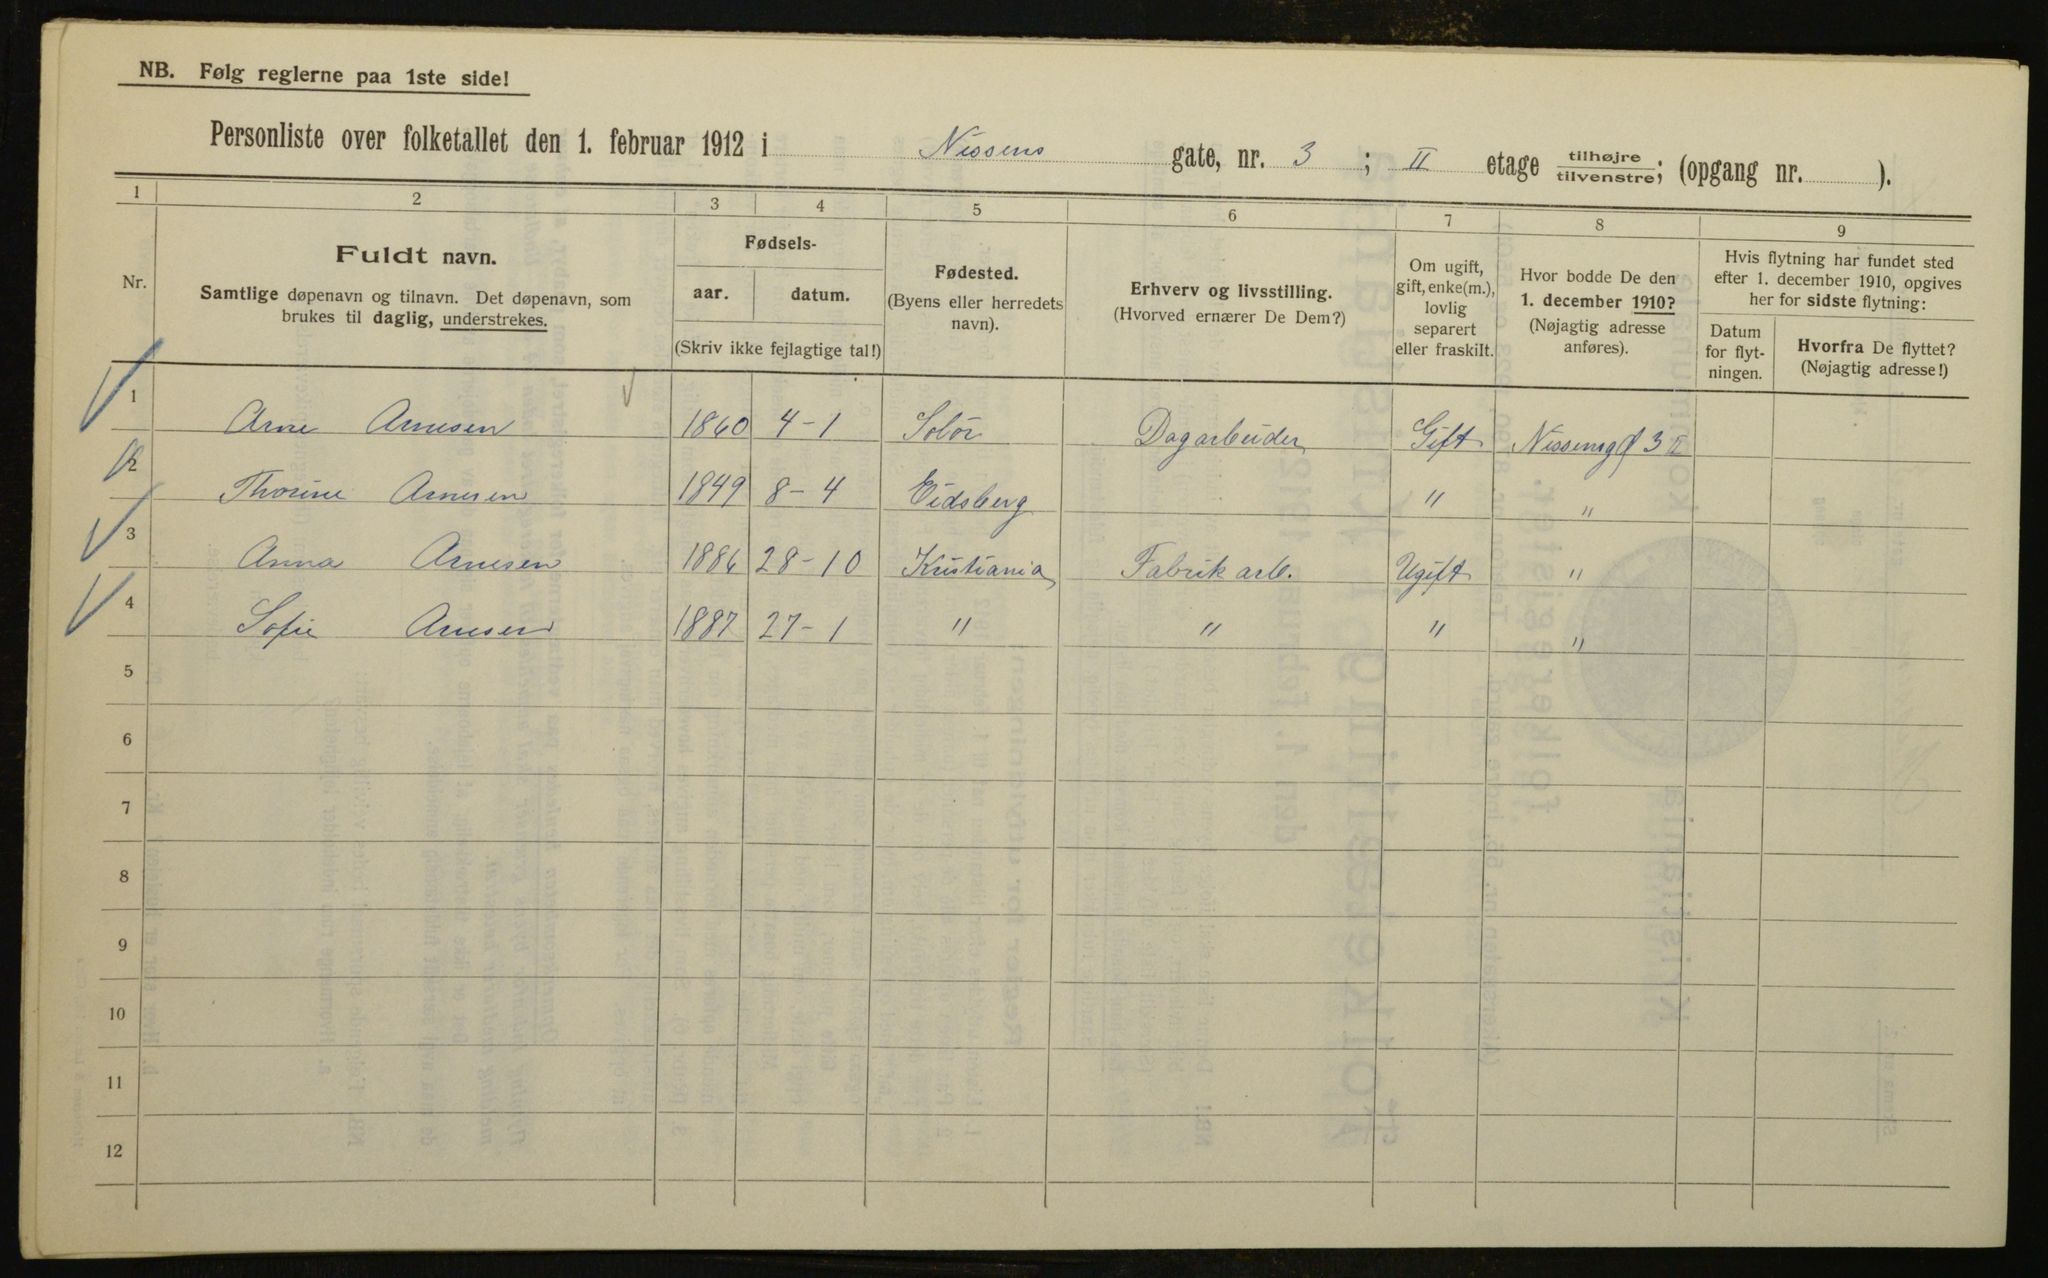 NB. Følg reglerne paa 1ste side!
Personliste over folketallet den 1. februar 1912 i Nissens gate, nr. 3 ; II etage tilhøjre tilvenstre; (opgang nr. ).
1 2 3 4 5 6 7 8 9
Nr.
Fuldt navn.
Samtlige døpenavn og tilnavn. Det døpenavn, som
brukes til daglig, understrekes.
Fødsels-
aar. datum.
(Skriv ikke fejlagtige tal!)
Fødested.
(Byens eller herredets
navn).
Erhverv og livsstilling.
(Hvorved ernærer De Dem?)
Om ugift,
gift, enke(m.),
lovlig
separert
eller fraskilt.
Hvor bodde De den
1. december 1910?
(Nøjagtig adresse
anføres).
Hvis flytning har fundet sted
efter 1. december 1910, opgives
her for sidste flytning:
Datum
for flyt-
ningen.
Hvorfra De flyttet?
(Nøjagtig adresse!)
1 Arne Arnesen 1860 4-1 Solør Dagarbeider Gift Nissensgt 3 II
2 Thorine Arnesen 1849 8-4 Eidsberg " "
3 Anna Arnesen 1886 28-10 Kristiania Fabrik arb. Ugift "
4 Sofie Arnesen 1887 27-1 " " " "
5
6
7
8
9
10
11
12